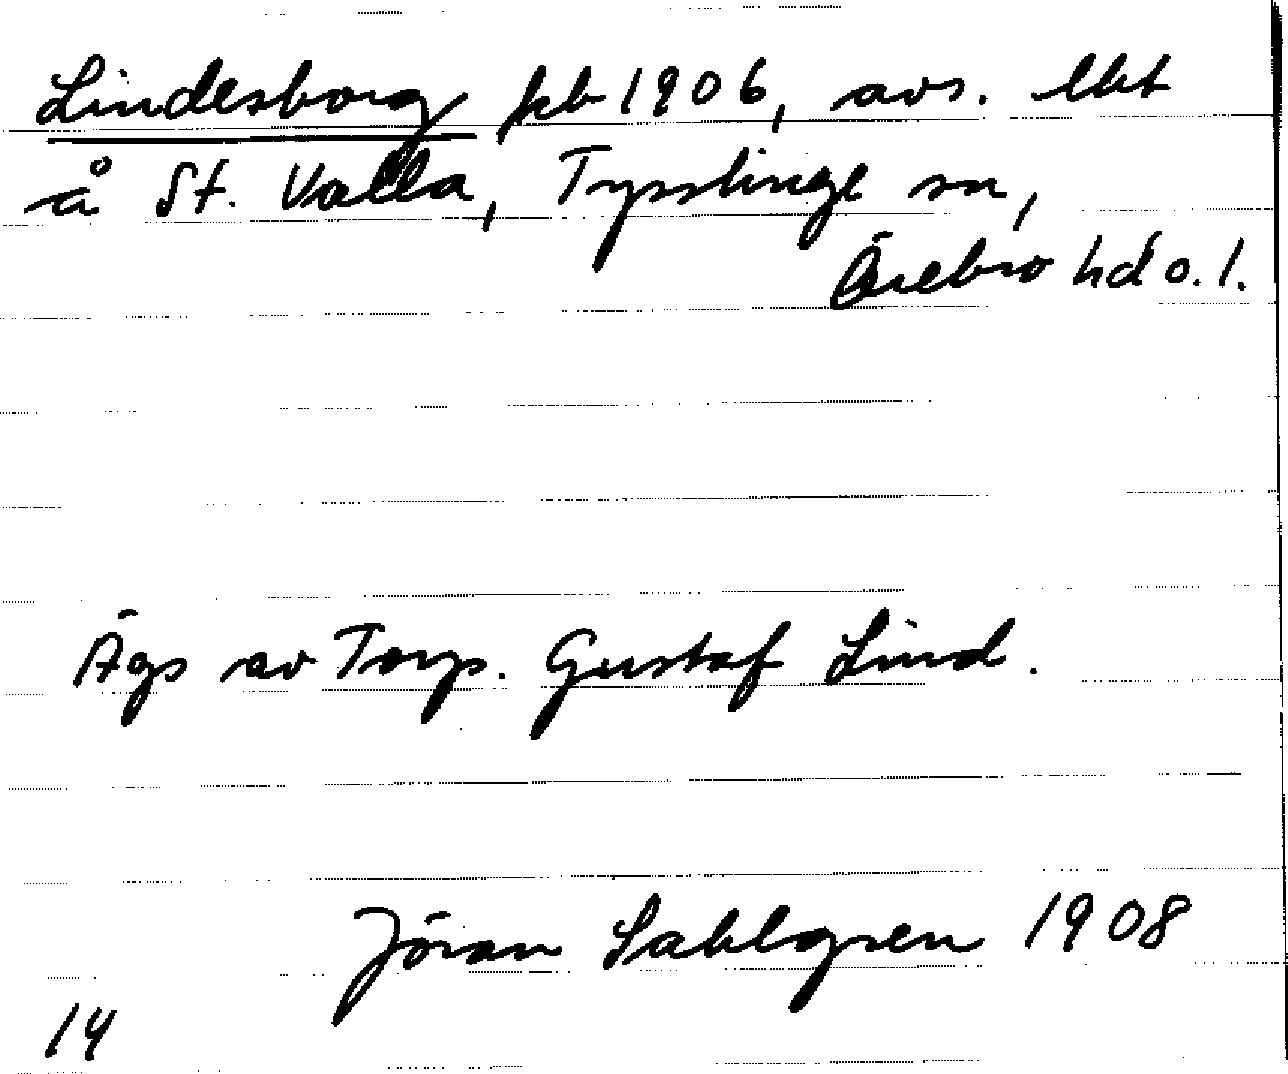 Lindesborg kb 1906, avs. lht
å St. Valla, Tysslinge sn,
Örebro hd o. l.
Ägs av Torp. Gustaf Lind.
Jöran Sahlgren 1908
14